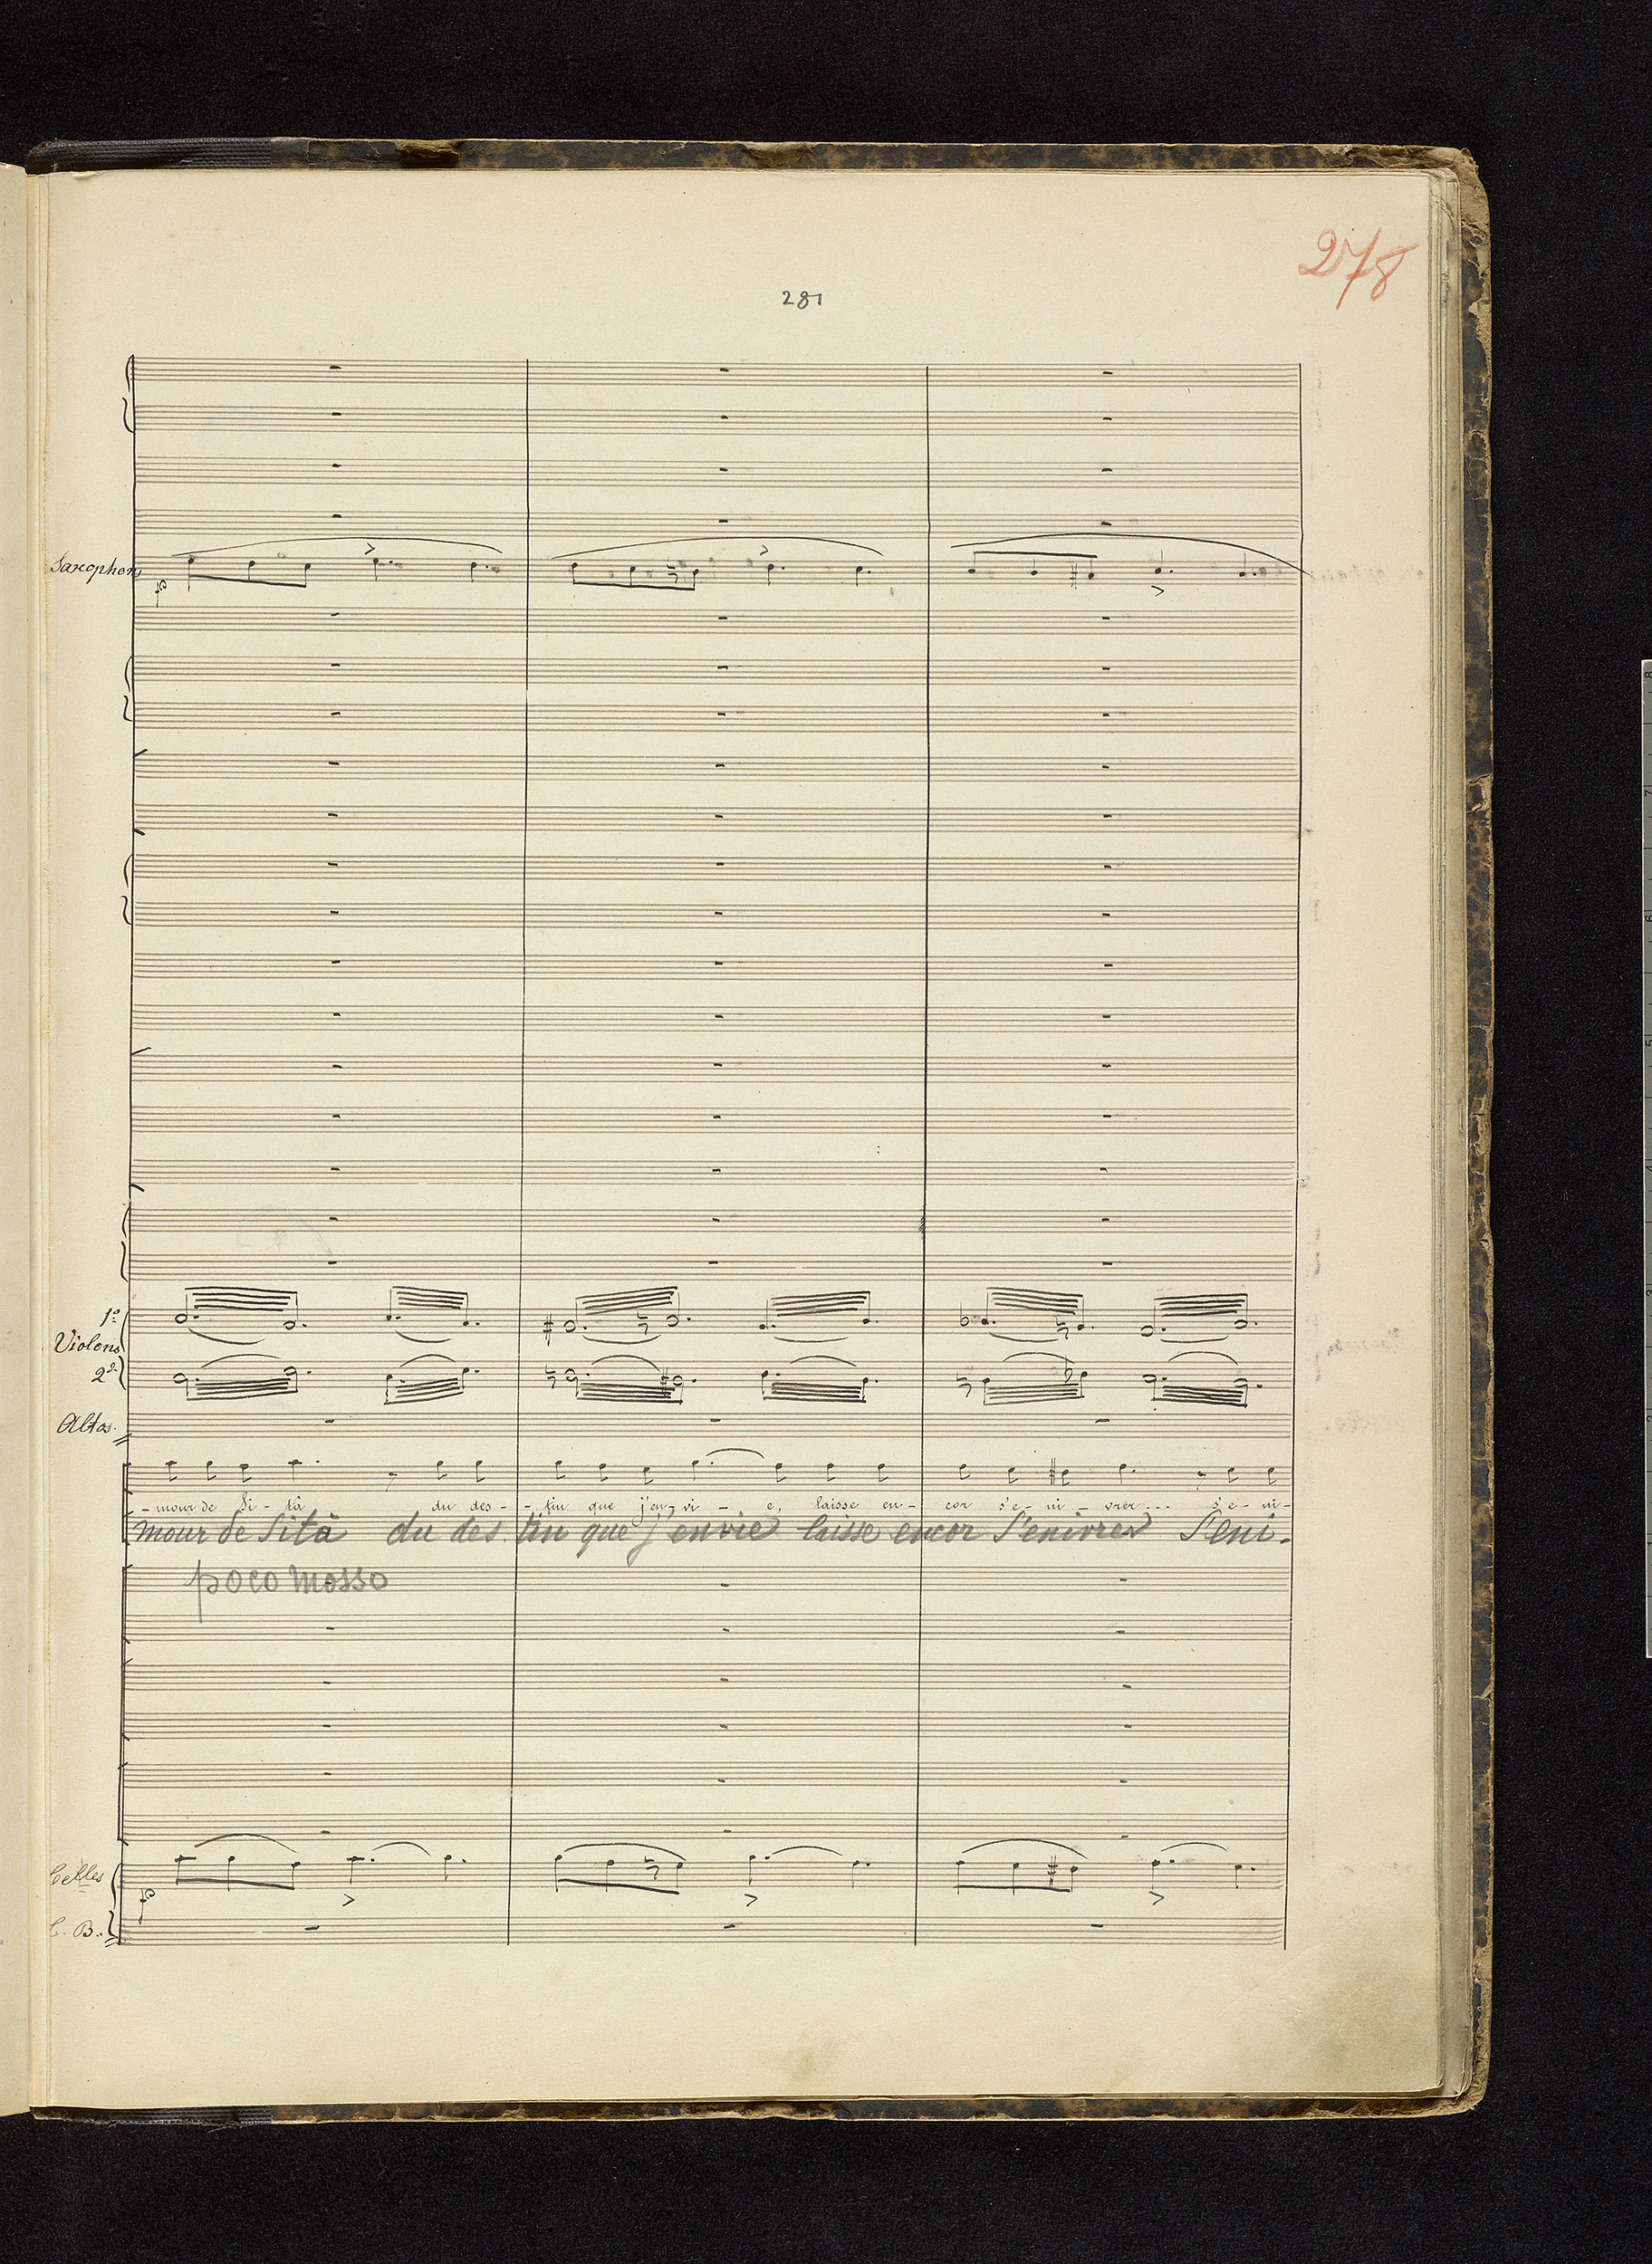 278
281
Saxophons
1º
Violons
2ds
Altos.
-mour de Si-tâ du des-tin que j'en-vi-e, laisse en-cor s'e-ni-vrer... s'e-ni-
mour de Sitâ du des.tin que j'envie laisse encor S'enivrer S'eni-
poco mosso
Celles
C. B.